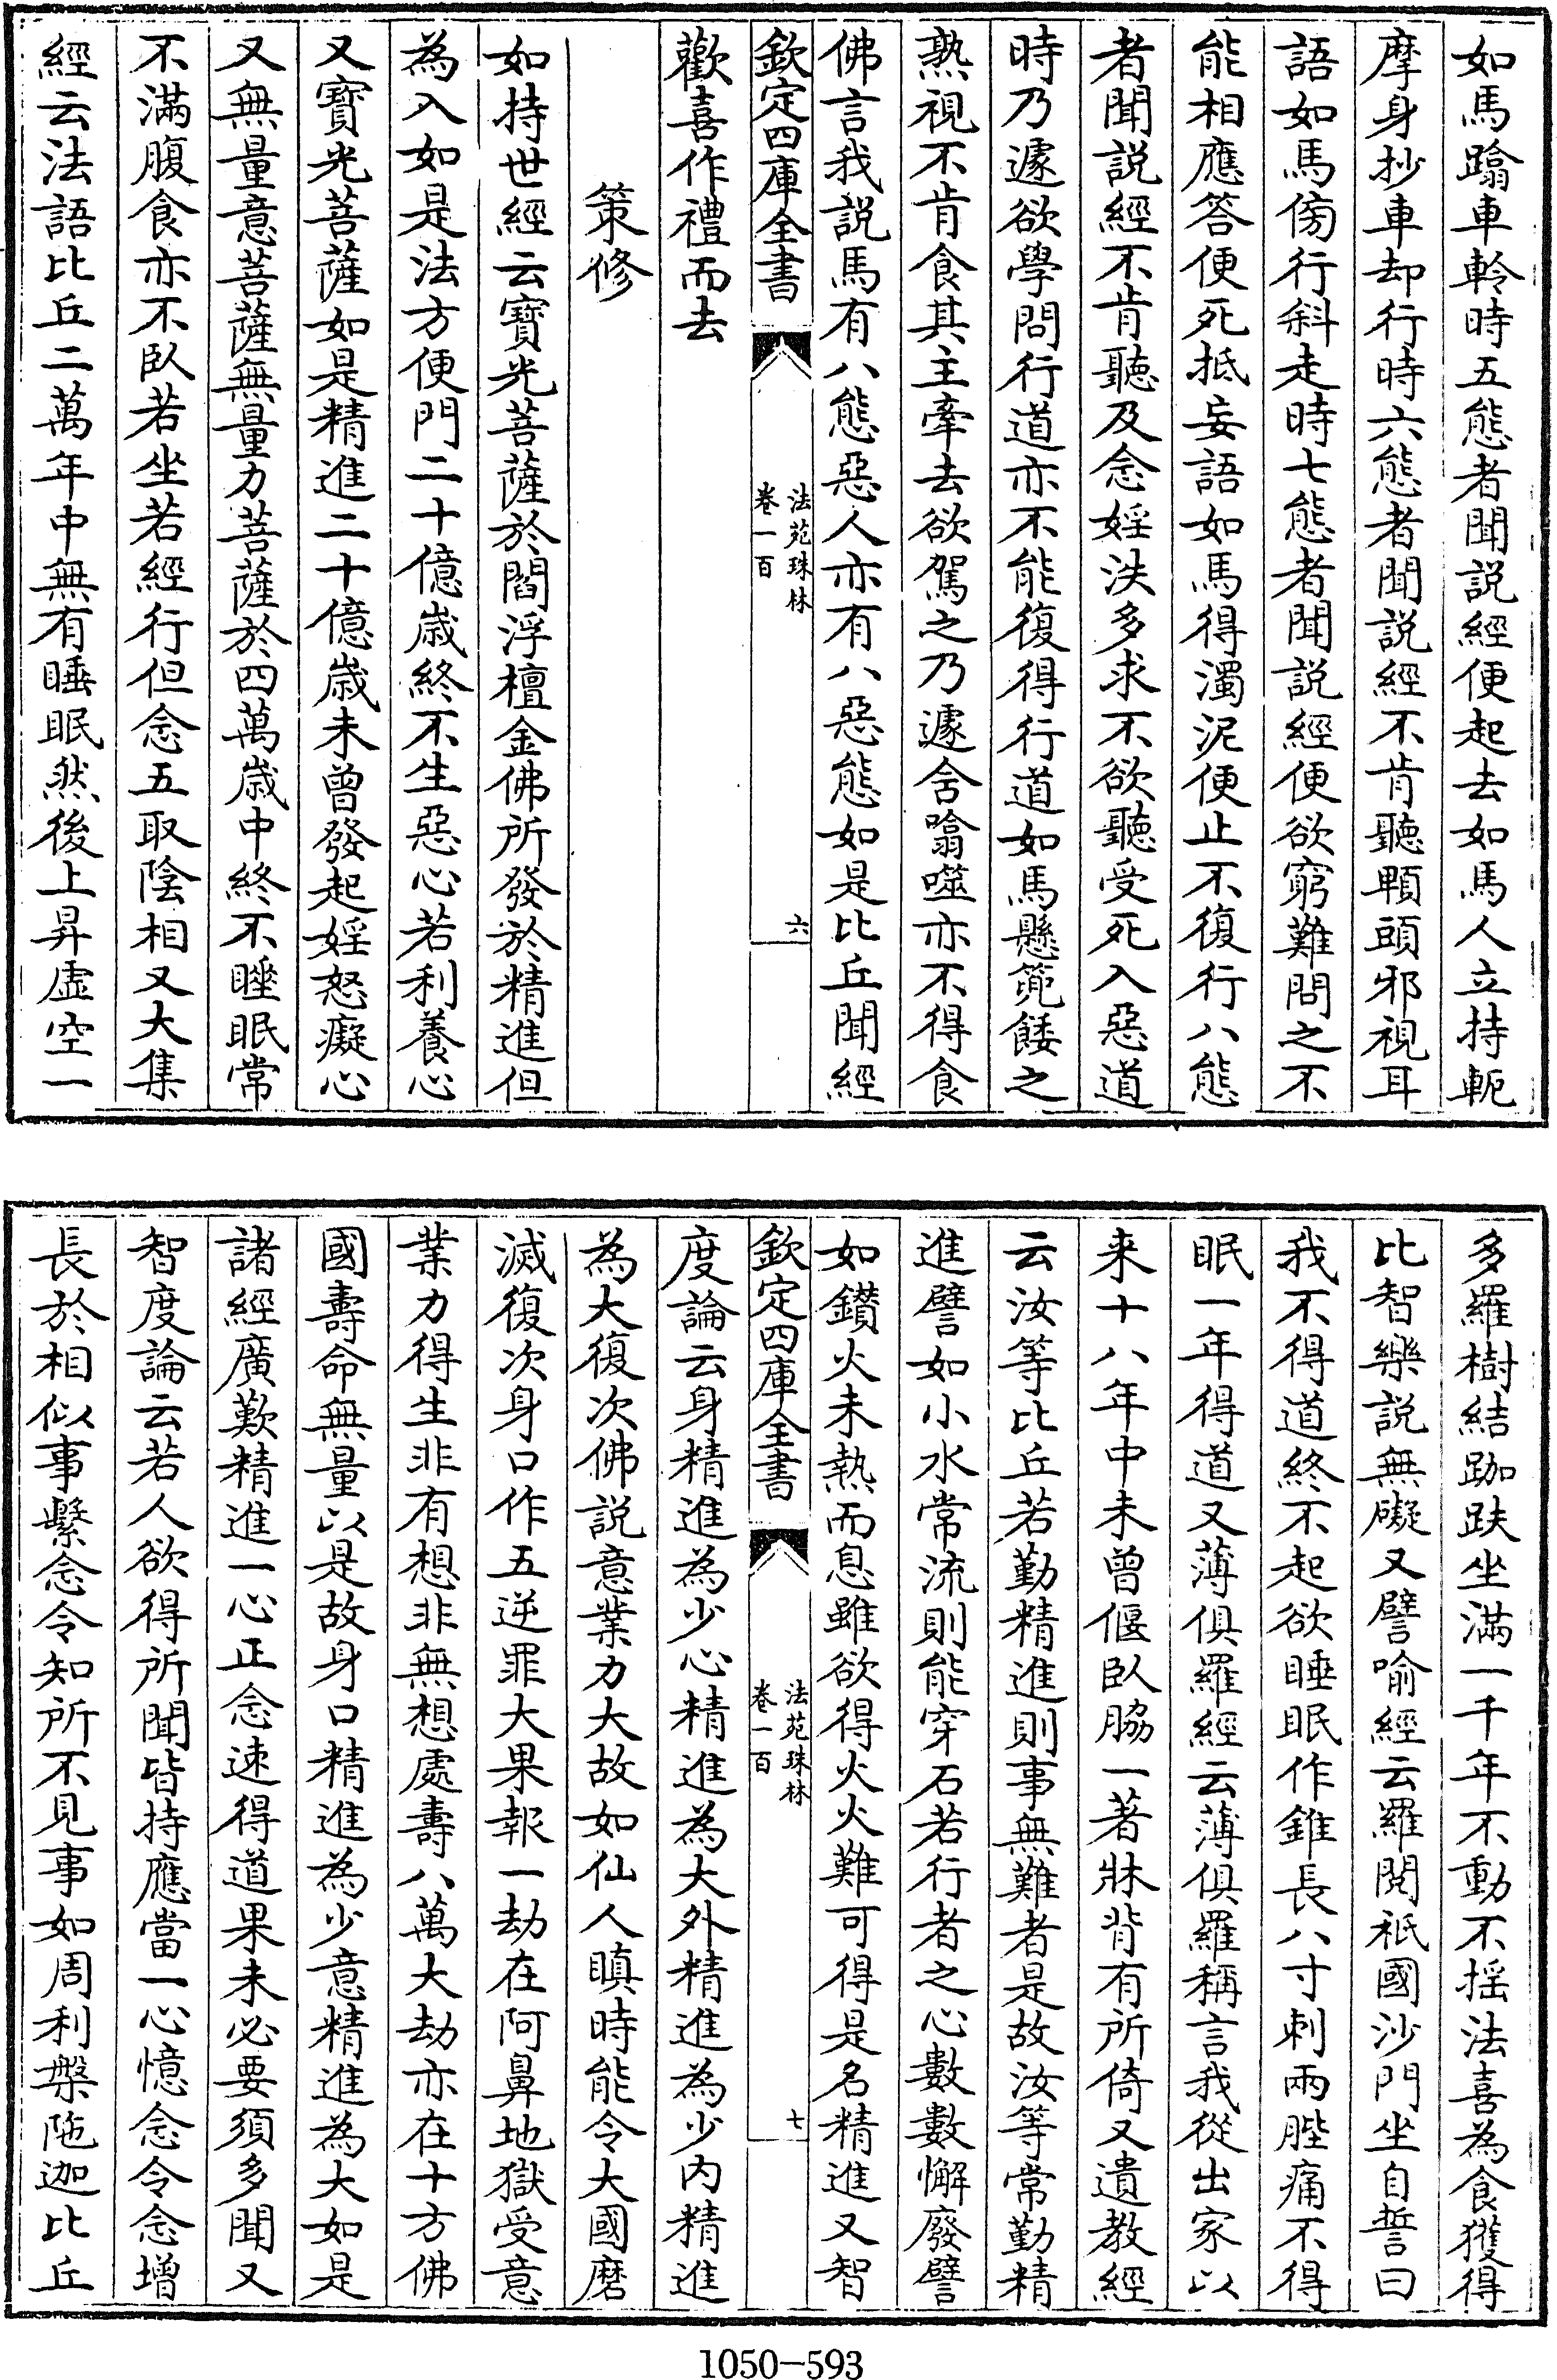 如馬蹹車軨時五態者聞説經便起去如馬人立持軛
摩身抄車却行時六態者聞説經不肯聽顊頭邪視耳
語如馬傍行斜走時七態者聞説經便欲窮難問之不
能相應答便死抵妄語如馬得濁泥便止不復行八態
者聞説經不肯聽及念婬泆多求不欲聽受死入惡道
時乃遽欲學問行道亦不能復得行道如馬懸篼餧之
熟視不肯食其主牽去欲駕之乃遽含噏噬亦不得食
佛言我説馬有八態惡人亦有八惡態如是比丘聞經
欽定四庫全書
法苑珠林
卷一百
六
歡喜作禮而去
策修
如持世經云寶光菩薩於閻浮檀金佛所發於精進但
為入如是法方便門二十億歲終不生惡心若利養心
又寶光菩薩如是精進二十億歲未曾發起婬怒癡心
又無量意菩薩無量力菩薩於四萬歲中終不睡眠常
不滿腹食亦不臥若坐若經行但念五取陰相又大集
經云法語比丘二萬年中無有睡眠然後上昇虛空一
多羅樹結跏趺坐滿一千年不動不摇法喜為食獲得
比智樂説無礙又譬喻經云羅閱祇國沙門坐自誓曰
我不得道終不起欲睡眠作錐長八寸刺兩䏶痛不得
眠一年得道又薄俱羅經云薄俱羅稱言我從出家以
来十八年中未曾偃臥脇一著牀背有所倚又遺教經
云汝等比丘若勤精進則事無難者是故汝等常勤精
進譬如小水常流則能穿石若行者之心數數懈廢譬
如鑚火未熱而息雖欲得火火難可得是名精進又智
欽定四庫全書
法苑珠林
卷一百
七
度論云身精進為少心精進為大外精進為少内精進
為大復次佛説意業力大故如仙人瞋時能令大國磨
滅復次身口作五逆罪大果報一劫在阿鼻地獄受意
業力得生非有想非無想處壽八萬大劫亦在十方佛
國壽命無量以是故身口精進為少意精進為大如是
諸經廣歎精進一心正念速得道果未必要須多聞又
智度論云若人欲得所聞皆持應當一心憶念令念增
長於相似事繫念令知所不見事如周利槃陁迦比丘
1050-593